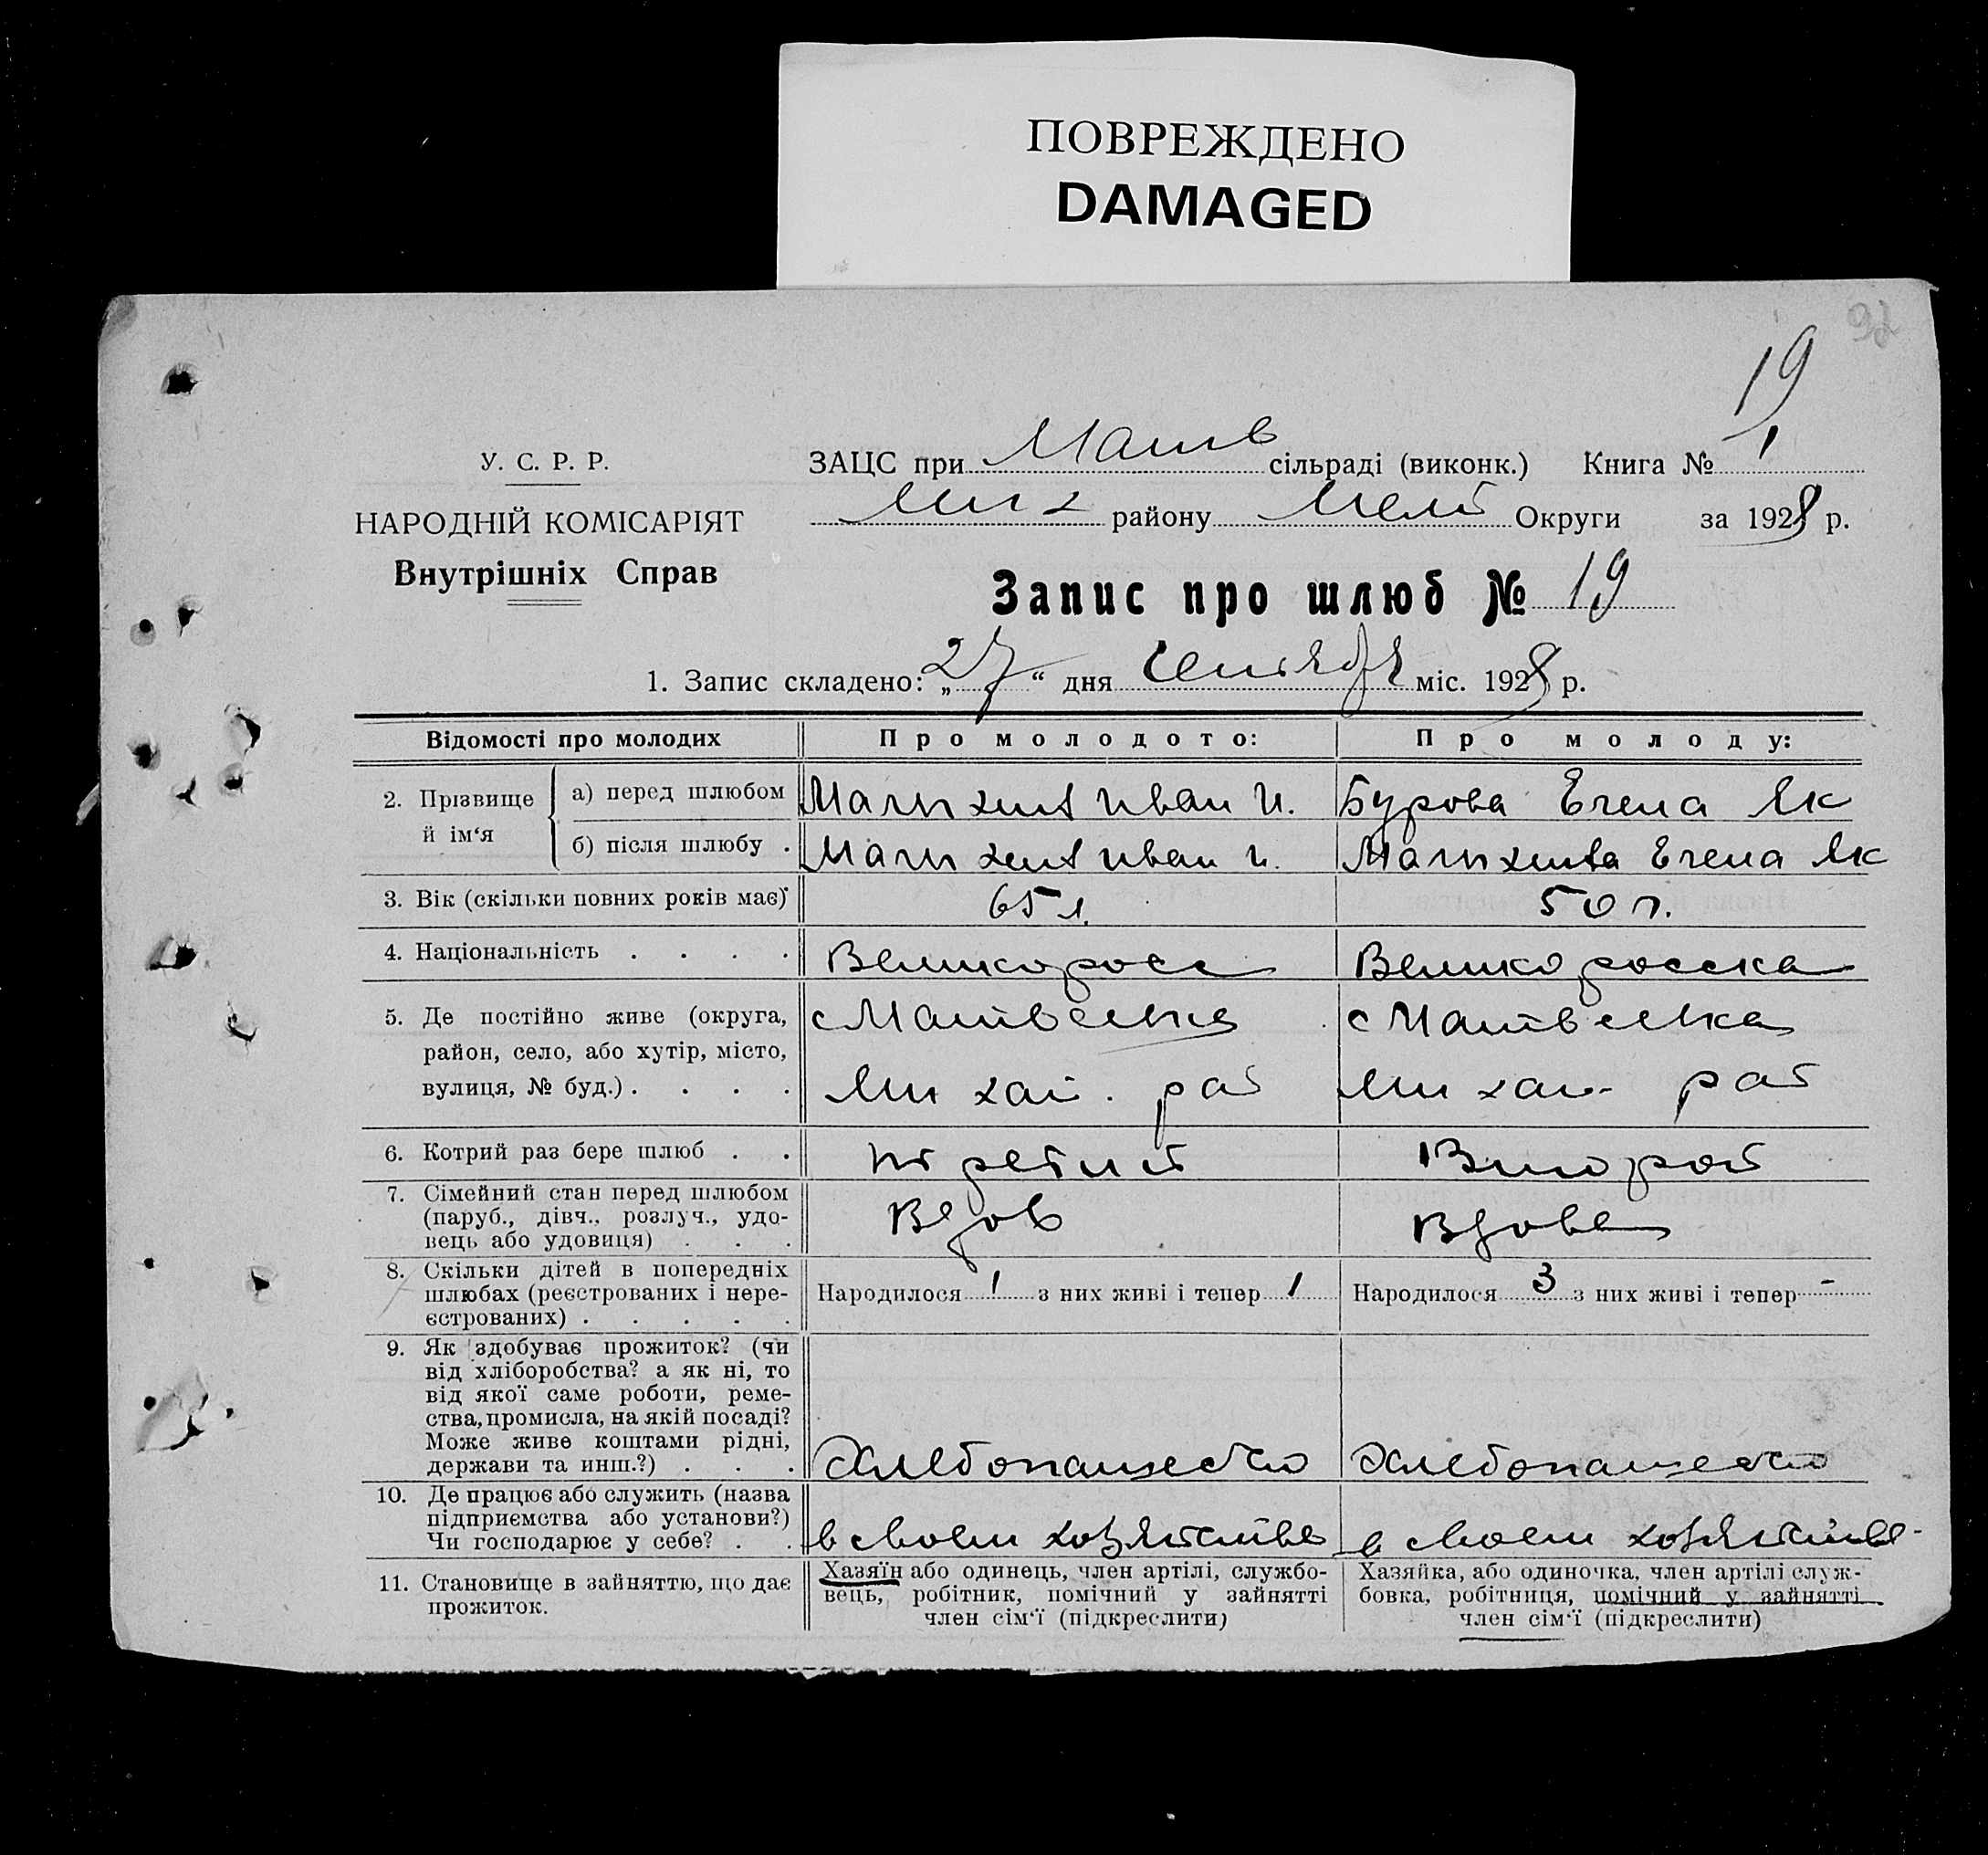 ПОВРЕЖДЕНО
DAMAGED
92
19
У. С. Р. Р.
ЗАЦС при Матв сільраді (виконк.) Книга № 1
НАРОДНІЙ КОМІСАРІЯТ
Мих району Мелит Округи за 1928 р.
Внутрішніх Справ
Запис про шлюб № 19
1. Запис складено: „27“ дня Сентября міс. 1928 р.
Відомості про молодих
Про молодого:
Про молоду:
2. Прізвище й ім‘я
а) перед шлюбом
Иван И.
Бурова Елена Як
б) після шлюбу .
Иван И.
Елена Як
3. Вік (скільки повних років має)
65 л.
50 л.
4. Національність . . . .
Великоросс
Великоросска
5. Де постійно живе (округа,
район, село, або хутір, місто,
вулиця, № буд.) . . . .
с Матвеевка
Михай. рай
с Матвеевка
Михай. рай
6. Котрий раз бере шлюб . .
третий
Второй
7. Сімейний стан перед шлюбом
(паруб., дівч., розлуч., удо-
вець або удовиця) . . .
Вдов
Вдова
8. Скільки дітей в попередніх
шлюбах (реєстрованих і нере-
єстрованих) . . . . .
Народилося 1 з них живі і тепер 1
Народилося 3 з них живі і тепер -
9. Як здобуває прожиток? (чи
від хліборобства? а як ні, то
від якої саме роботи, реме-
ства, промисла, на якій посаді?
Може живе коштами рідні,
держави та инш.?) . . .
Хлебопашество
Хлебопашество
10. Де працює або служить (назва
підприємства або установи?)
Чи господарює у себе? . .
в своем хозяйстве
в своем хозяйстве
11. Становище в зайняттю, що дає
прожиток.
Хазяїн або одинець, член артілі, службо-
вець, робітник, помічний у зайнятті
член сім‘ї (підкреслити)
Хазяйка, або одиночка, член артілі служ-
бовка, робітниця, помічний у зайнятті
член сім‘ї (підкреслити)